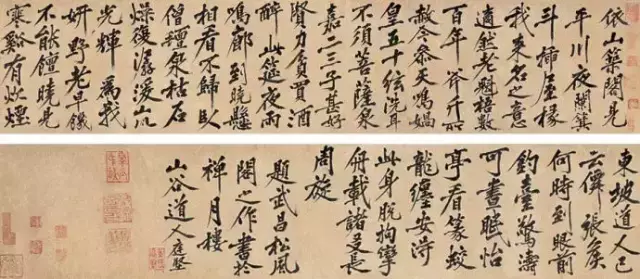 依山築閣見
平川夜闌箕
斗插屋椽
我來名之意
適然老魁梧數
百年斧斤所
赦今參天鳴媧
皇五十弦洗耳
不須菩薩泉
嘉二三子甚好
賢力貧買酒
醉此筵夜雨
鳴廊到曉懸
相看不歸臥
僧氈泉枯石
燥復潺湲山川
光輝為我
妍野老早饑
不能饘曉見
寒谿有炊煙
東坡道人已
張侯
何時到眼前
釣臺驚濤
可晝眠怡
亭看篆蛟
龍纏安得
此身脫拘攣
舟載諸友長
周旋
題武昌松風
閣之作書於
禪月樓
山谷道人庭堅